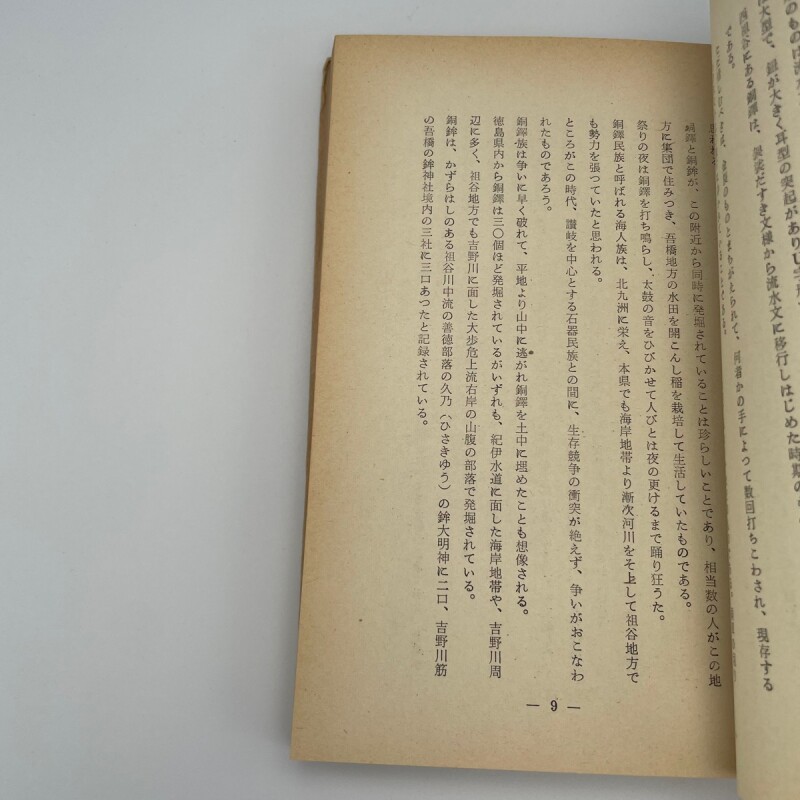 のものは
は大型で、鈕が大きく耳型の突起があり
西祖谷にある銅鐸は、袈裟だすき文様から流水文に移行しはじめた時期の
である。
何者かの手によつて数回打ちこわされ、現存する
銅鐸と銅鉾が、この附近から同時に発掘されていることは珍らしいことであり、相当数の人がこの地
方に集団で住みつき、吾橋地方の水田を開こんし稲を栽培して生活していたものである。
祭りの夜は銅鐸を打ち鳴らし、太鼓の音をひびかせて人びとは夜の更けるまで踊り狂うた。
銅鐸民族と呼ばれる海人族は、北九洲に栄え、本県でも海岸地帯より漸次河川をそ上して祖谷地方で
も勢力を張つていたと思われる。
ところがこの時代、讃岐を中心とする石器民族との間に、生存競争の衝突が絶えず、争いがおこなわ
れたものであろう。
銅鐸族は争いに早く破れて、平地より山中に逃がれ銅鐸を土中に埋めたことも想像される。
徳島県内から銅鐸は三〇個ほど発掘されているがいずれも、紀伊水道に面した海岸地帯や、吉野川周
辺に多く、祖谷地方でも吉野川に面した大歩危上流右岸の山腹の部落で発掘されている。
銅鉾は、かずらはしのある祖谷川中流の善徳部落の久乃（ひさきゆう）の鉾大明神に二口、吉野川筋
の吾橋の鉾神社境内の三社に三口あつたと記録されている。
— 9 —